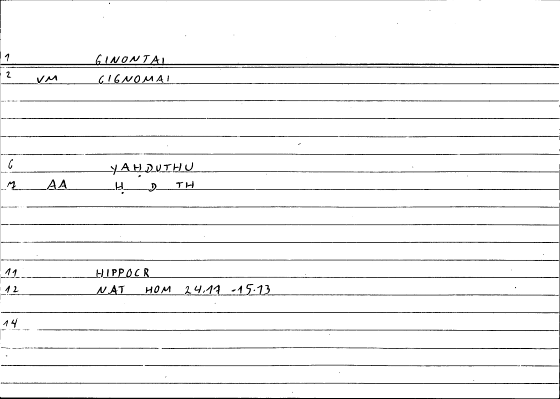 1 GINONTAI
2 VM GIGNOMAI
6 YAḤDUTHU
7 AA Ḥ D TH
11 HIPPOCR
12 NAT HOM 24.17 -15.13
14